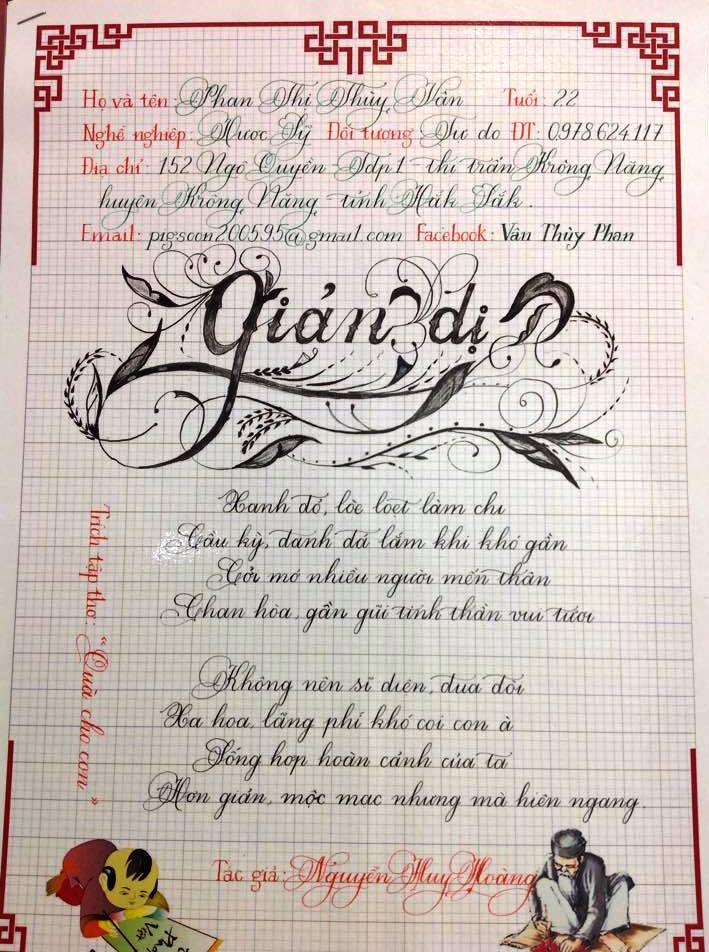 Họ và tên: Phan Thị Thùy Vân Tuổi: 22
Nghề nghiệp: Dược Sỹ Đối tượng Tự do ĐT: 0978.624.117
Địa chỉ: 152 Ngô Quyền - Tdp1 - thị trấn Krông Năng
huyện Krông Năng - tỉnh Đăk Lăk.
Email: pigsoon200595@gmail.com Facebook: Vân Thùy Phan
Giản dị
Xanh đỏ, lòe loẹt làm chi
Cầu kỳ, đanh đá lắm khi khó gần
Cởi mở nhiều người mến thân
Chan hòa, gần gũi tinh thần vui tươi
Không nên sĩ diện, đua đòi
Xa hoa, lãng phí khó coi con à
Sống hợp hoàn cảnh của ta
Đơn giản, mộc mạc nhưng mà hiên ngang.
Trích tập thơ: "Quà cho con"
Tác giả: Nguyễn Huy Hoàng